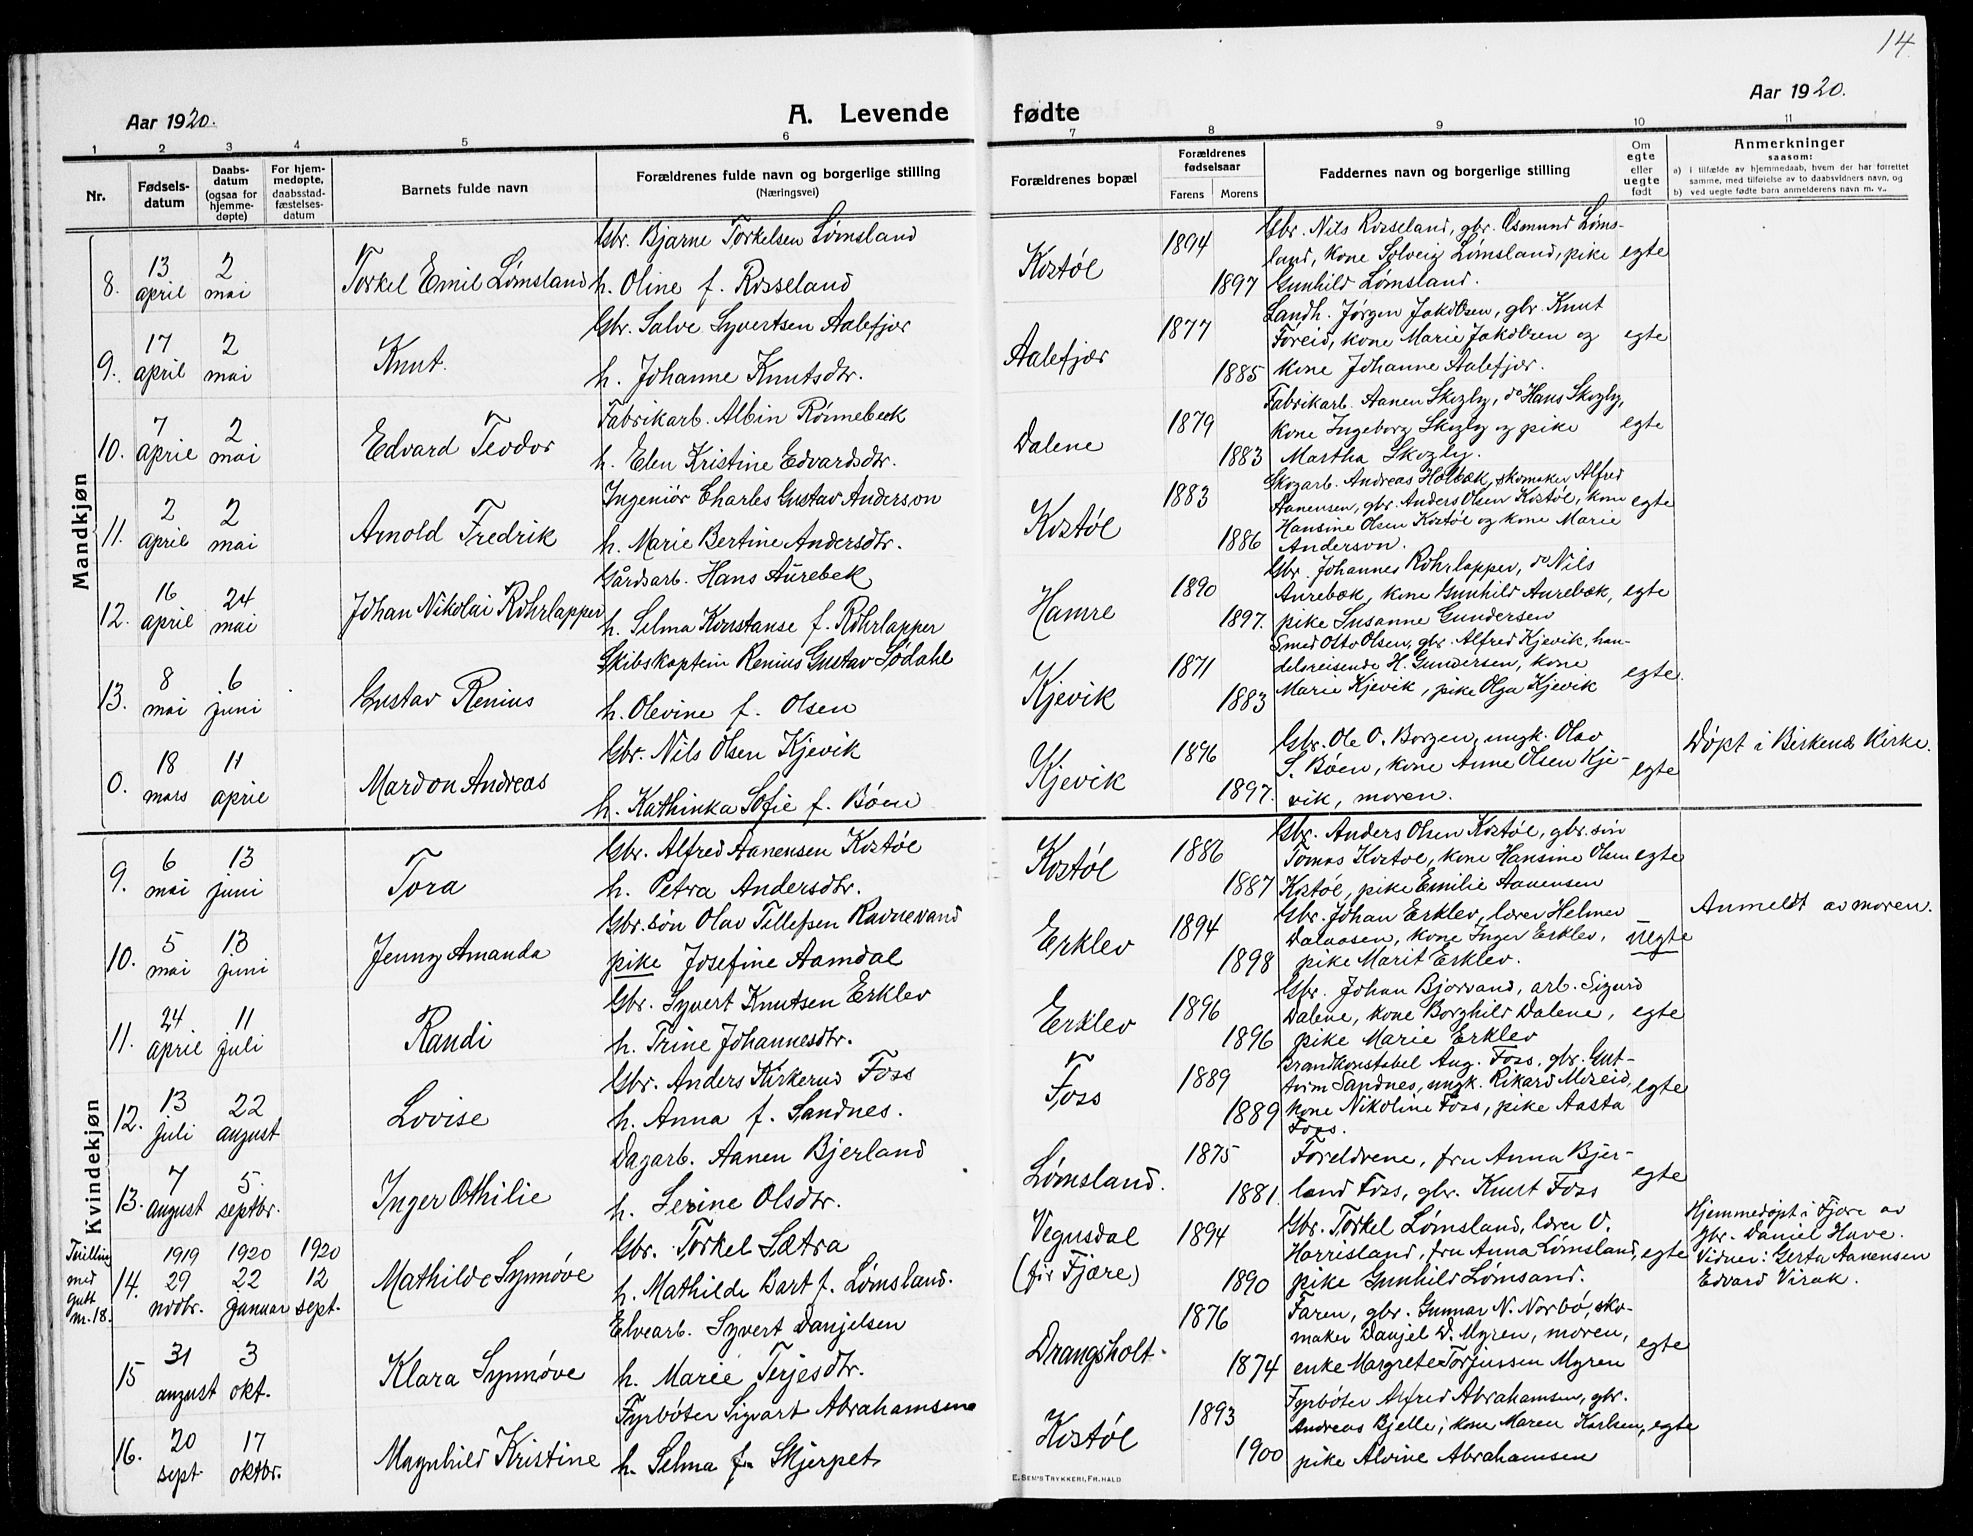 14.
Aar 1920.
A. Levende
fødte
Aar 1920.
1 2 3 4 5 6 7 8 9 10 11
Nr.
Fødsels-
datum
Daabs-
datum
(ogsaa for
hjemme-
døpte)
For hjem-
medøpte,
daabsstad-
fæstelses-
datum
Barnets fulde navn
Forældrenes fulde navn og borgerlige stilling
(Næringsvei)
Forældrenes bopæl
Forældrenes
fødselsaar
Farens Morens
Faddernes navn og borgerlige stilling
Om
egte
eller
uegte
født
Anmerkninger
saasom:
a) i tilfælde av hjemmedaab, hvem der har forrettet
samme, med tilføielse av to daabsvidners navn, og
b) ved uegte fødte barn anmelderens navn m. v..
Mandkjøn
8. 13 april 2 mai Torkel Emil Lømsland
Gbr. Bjarne Torkelsen Lømsland
h. Oline f. Rosseland
Kostøl 1894 1897
Gbr. Nils Rosseland, gbr. Osmund Løms-
land, kone Solveig Lømsland, pike
Gunhild Lømsland.
egte
9. 17 april 2 mai Knut
Gbr. Salve Syvertsen Aalefjær
h. Johanne Knutsdtr.
Aalefjær 1877 1885
Landh. Jørgen Jakobsen, gbr. Knut
Føreid, kone Marie Jakobsen og
kone Johanne Aalefjær.
egte
10. 7 april 2 mai Edvard Teodor
Fabrikarb. Albin Rönnebeck
h. Elen Kristine Edvardsdtr.
Dalene 1879 1883
Fabrikarb. Aanen Skogly, do Hans Skogly,
kone Ingeborg Skogly og pike
Martha Skogly.
egte
11. 2 april 2 mai Arnold Fredrik
Ingeniör Charles Gustav Anderson
h. Marie Bertine Andersdtr.
Kostøl 1883 1886
Skogarb. Andreas Holbæk, skomaker Alfred
Aanensen, gbr. Anders Olsen Kostøl, kone
Hansine Olsen Kostøl og kone Marie
Anderson.
egte
12. 16 april 24 mai Johan Nikolai Rohrlapper
Gårdsarb. Hans Aurebek
h. Selma Konstanse f. Rohrlapper
Hamre 1890 1897.
Gbr. Johannes Rohrlapper, do Nils
Aurebæk, kone Gunhild Aurebæk,
pike Susanne Gundersen
egte
13. 8 mai 6 juni Gustav Renius
Skibskaptein Renius Gustav Södahl
h. Olevine f. Olsen
Kjevik 1871 1883
Smed Otto Olsen, gbr. Alfred Kjevik, han-
delsreisende H. Gundersen, kone
Marie Kjevik, pike Olga Kjevik
egte.
0. 18 mars 11 april Mardon Andreas
Gbr. Nils Olsen Kjevik
h. Kathinka Sofie f. Böen
Kjevik 1896 1897.
Gbr. Ole O. Borgen, ungk. Olav
S. Böen, kone Anne Olsen Kje-
vik, moren.
egte
Döpt i Birkenes Kirke.
Kvindekjøn
9. 6 mai 13 juni Tora
Gbr. Alfred Aanensen Kostøl
h. Petra Andersdtr.
Kostøl 1886 1887
Gbr. Anders Olsen Kostøl, gbr. sön
Tomas Kostøl, kone Hansine Olsen
Kostøl, pike Emilie Aanensen
egte
10. 5 mai 13 juni Jenny Amanda
Gbr. sön Olav Tellefsen Ravnevand
pike Josefine Aamdal
Erklev 1894 1898
Gbr. Johan Erklev, lærer Helmer
Dalaasen, kone Inger Erklev,
pike Marit Erklev.
uegte
Anmeldt av moren.
11. 24 april 11 juli Randi
Gbr. Syvert Knutsen Erklev
h. Trine Johannesdtr.
Erklev 1896 1896
Gbr. Johan Bjorvand, arb. Sigurd
Dalene, kone Borghild Dalene,
pike Marie Erklev
egte
12. 13 juli 22 august Lovise
Gbr. Anders Kirkerud Foss
h. Anna f. Sandnes.
Foss 1889 1889
Brandkonstabel Aug. Foss, gbr. Gut-
torm Sandnes, ungk. Rikard Moreid,
kone Nikoline Foss, pike Aasta
Foss.
egte
13. 7 august 5. septbr. Inger Othilie
Dagarb. Aanen Bjerland
h. Serine Olsdtr.
Lømsland. 1875 1881.
Foreldrene, fru Anna Bjer-
land Foss, gbr. Knut Foss
egte
Tvilling
med
gutt
nr. 18.
14. 1919 29 novbr. 1920 22 januar 1920 12 sept. Mathilde Synnøve
Gbr. Torkel Sætra
h. Mathilde Bart f. Lømsland.
Vegusdal
(för Fjære)
1894 1890
Gbr. Torkel Lømsland, lærer O.
Harresland, fru Anna Lømsland,
pike Gunhild Lømsand.
egte
Hjemmedøpt i Fjære av
gbr. Daniel Huve.
Vidner: Gerta Aanensen
Edvard Virak.
15 31 august 3 okt. Klara Synnøve
Elvearb. Syvert Danjelsen
h. Marie Terjesdtr.
Drangsholt. 1876 1874
Faren, gbr. Gunnar N. Norbö, sko-
maker Danjel D. Myren, moren,
enke Margrete Torjussen Myren
egte
16. 20 sept. 17 oktbr. Magnhild Kristine
Fyrböter Sigvart Abrahamsen
h. Selma f. Skjerpet
Kostøl 1893 1900
Fyrböter Alfred Abrahamsen, gbr.
Andreas Bjelle, kone Maren Karlsen,
pike Alvine Abrahamsen
egte
E. SEM'S TRYKKERI, FR.HALD